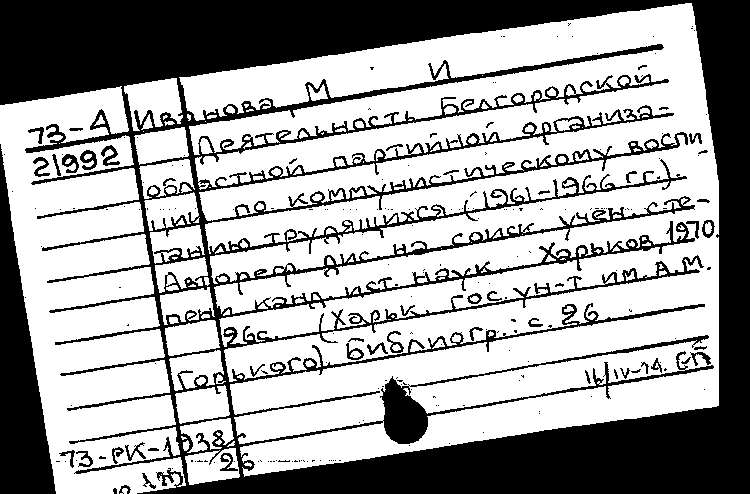 73-А Иванова, М И
21992 Деятельность Белгородской
областной партийной организа-
ции по коммунистическому воспи-
танию трудящихся (1961-1966 гг.).
Автореф. дис. на соиск. учен. сте-
пени канд. ист. наук. Харьков, 1970.
26с. (Харьк. гос. ун-т им. А.М.
Горького). Библиогр.: с. 26.
16/IV-74.
73-РК-1938
26